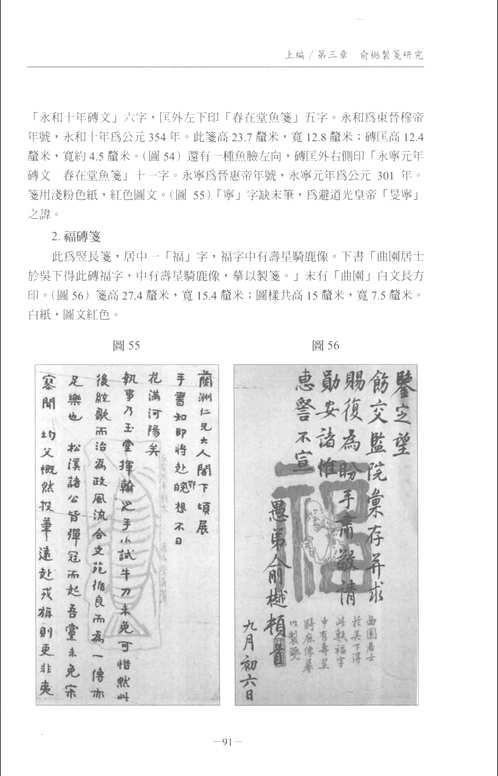 上編/第三章 俞樾製箋研究
「永和十年磚文」六字,匡外左下印「春在堂魚箋」五字。永和爲東晉穆帝
年號,永和十年爲公元 354 年。此箋高 23.7 釐米,寬 12.8 釐米;磚匡高 12.4
釐米,寬約 4.5 釐米。(圖 54) 還有一種魚臉左向,磚匡外右側印「永寧元年
磚文 春在堂魚箋」十一字。永寧爲晉惠帝年號,永寧元年爲公元 301 年。
箋用淺粉色紙,紅色圖文。(圖 55)「寧」字缺末筆,爲避道光皇帝「旻寧」
之諱。
2. 福磚箋
此爲竪長箋,居中一「福」字,福字中有壽星騎鹿像。下書「曲園居士
於吳下得此磚福字,中有壽星騎鹿像,摹以製箋。」末有「曲園」白文長方
印。(圖 56) 箋高 27.4 釐米,寬 15.4 釐米;圖樣共高 15 釐米,寬 7.5 釐米。
白紙,圖文紅色。
圖 55
圖 56
蘭洲仁兄大人閣下頃展
手書知即將赴 想不日
花滿河陽矣
執事乃玉堂揮翰之手小試牛刀未免可惜然以
後絃歌而治爲政風流合文苑循良而爲一傳亦
足樂也 松溪諸公皆彈冠而起吾黨未免寂
寞聞 均父慨然投筆遠赴戎旃則更非夷
鑒定望
飭交監院彙存并求
賜復為盼手肅敬請
勛安諸惟
惠詧不宣
愚弟俞樾頓首
九月初六日
福
曲園居士
於吳下得
此磚福字
中有壽星
騎鹿像摹
以製箋
－91－